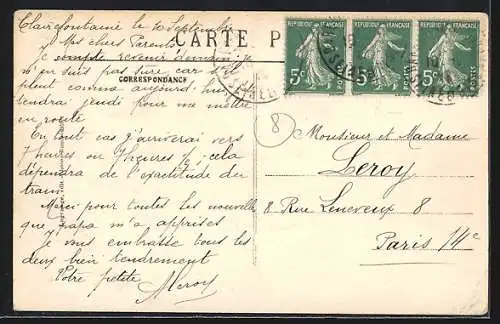 Clairefontaine le 10 Septembre
Mes chers Parents
CARTE P
Je compte revenir demain, je
n'en suis pas sûre car s'il
CORRESPONDANCE
pleut comme aujourd'hui
tendrai jeudi pour me mettre
en route
En tout cas j'arriverai vers
7 heures ou 7 heures ½ ; cela
dépendra de l'exactitude du
train.
Merci pour toutes les nouvelles
que papa m'a apprises
je vous embrasse tous les
deux bien tendrement
Votre petite
Meroy
REPUBLIQUE FRANÇAISE
5c
POSTES
REPUBLIQUE FRANÇAISE
5c
POSTES
REPUBLIQUE FRANÇAISE
5c
POSTES
8
Monsieur et Madame
Leroy
8 Rue Leneveux 8
Paris 14e